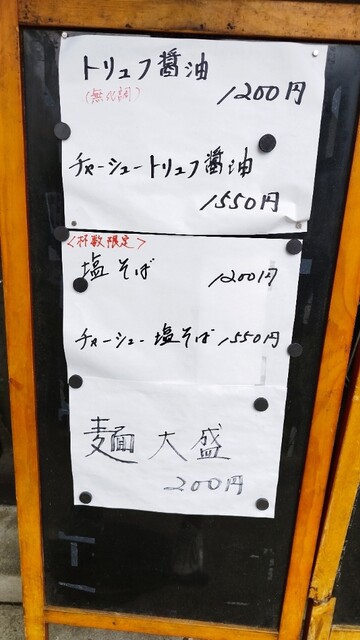 トリュフ醤油
(無化調)
1200円
チャーシュートリュフ醤油
1550円
<杯数限定>
塩そば 1200円
チャーシュー塩そば 1550円
麺大盛
200円